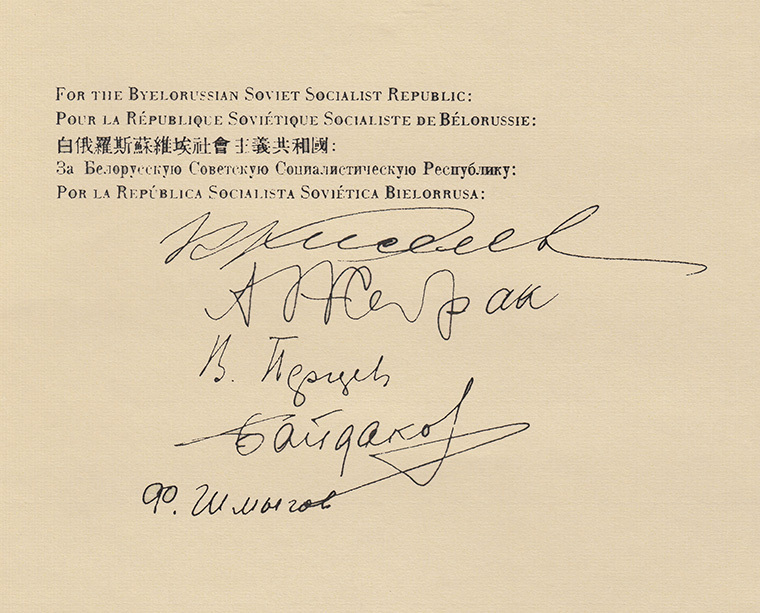 For the Byelorussian Soviet Socialist Republic:
Pour la République Soviétique Socialiste de Bélorussie:
白俄羅斯蘇維埃社會主義共和國:
За Белорусскую Советскую Социалистическую Республику:
Por la República Socialista Soviética Bielorrusa:
К Киселев
А Жебрак
В. Перцев
Байдаков
Ф. Шмыгов